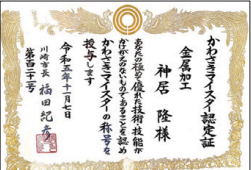 かわさきマイスター認定証
金属加工
神居 隆様
あなたの極めて優れた技術技能が
かけがえのないものであることを認め
かわさきマイスターの称号を
授与します
令和五年十一月七日
川崎市長 福田紀彦
第百二十一号